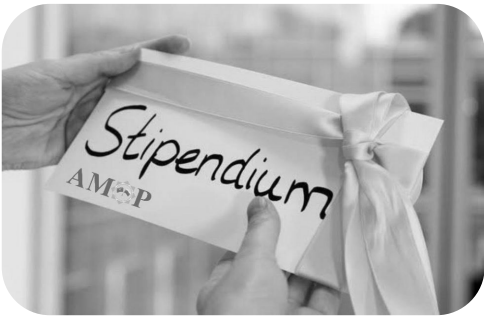 Stipendium
AMOP